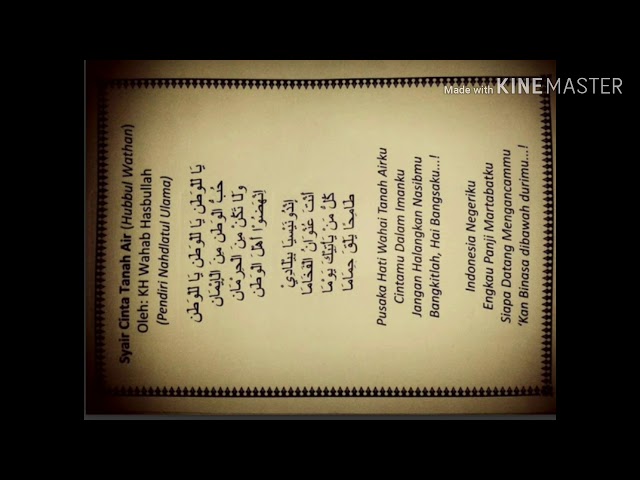 Made with KINEMASTER
Syair Cinta Tanah Air (Hubbul Wathan)
Oleh: KH Wahab Hasbullah
(Pendiri Nahdlatul Ulama)
يَا لَلْوَطَن يَا لَلْوَطَن يَا لَلْوَطَن
حُبُّ الْوَطَن مِنَ الْإِيْمَان
وَلَا تَكُنْ مِنَ الْحِرْمَان
اِنْهَضُوْا أَهْلَ الْوَطَن
إِنْدُونَيْسِيَا بِيْلَادِيْ
أَنْتَ عُنْوَانُ الْفَخَامَا
كُلُّ مَنْ يَأْتِيْكَ يَوْمًا
طَامِحًا يَلْقَ حِمَامَا
Pusaka Hati Wahai Tanah Airku
Cintamu Dalam Imanku
Jangan Halangkan Nasibmu
Bangkitlah, Hai Bangsaku...!
Indonesia Negeriku
Engkau Panji Martabatku
Siapa Datang Mengancammu
'Kan Binasa dibawah durimu...!